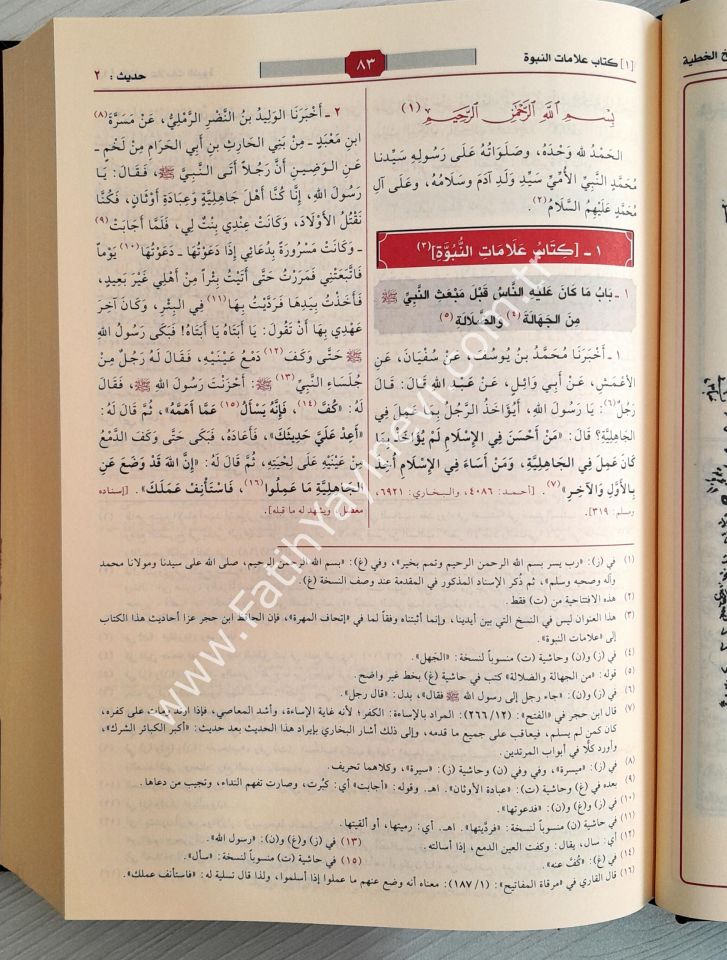 [١] كتاب علامات النبوة
٨٣
حديث : ٢
بِسْمِ اللَّهِ الرَّحْمَٰنِ الرَّحِيمِ (١)
الحَمْدُ للهِ وَحْدَهُ، وَصَلَوَاتُهُ عَلَى رَسُولِهِ سَيِّدِنا
مُحَمَّدٍ النَّبِيِّ الأُمِّيِّ سَيِّدِ وَلَدِ آدَمَ وَسَلَامُهُ، وَعَلَى آلِ
مُحَمَّدٍ عَلَيْهِمُ السَّلَامُ (٢).
١ ـ [كِتَابُ عَلَامَاتِ النُّبُوَّةِ] (٣)
١ ـ بَابُ مَا كَانَ عَلَيْهِ النَّاسُ قَبْلَ مَبْعَثِ النَّبِيِّ ﷺ
مِنَ الجَهَالَةِ (٤) وَالضَّلَالَةِ (٥)
١ ـ أَخْبَرَنَا مُحَمَّدُ بنُ يُوسُفَ، عَنْ سُفْيَانَ، عَنِ
الأَعْمَشِ، عَنْ أَبِي وَائِلٍ، عَنْ عَبْدِ اللهِ قَالَ: قَالَ
رَجُلٌ (٦): يَا رَسُولَ اللهِ، أَيُؤَاخَذُ الرَّجُلُ بِمَا عَمِلَ فِي
الجَاهِلِيَّةِ؟ قَالَ: «مَنْ أَحْسَنَ فِي الإِسْلَامِ لَمْ يُؤَاخَذْ بِمَا
كَانَ عَمِلَ فِي الجَاهِلِيَّةِ، وَمَنْ أَسَاءَ فِي الإِسْلَامِ أُخِذَ
بِالأَوَّلِ وَالآخِرِ» (٧). [أحمد: ٤٠٨٦، والبخاري: ٦٩٢١،
ومسلم: ٣١٩].
٢ ـ أَخْبَرَنَا الوَلِيدُ بنُ النَّضْرِ الرَّمْلِيُّ، عَنْ مَسَرَّةَ (٨)
ابنِ مَعْبَدٍ ـ مِنْ بَنِي الحَارِثِ بنِ أَبِي الحَرَامِ مِنْ لَخْمٍ ـ
عَنِ الوَضِينِ أَنَّ رَجُلاً أَتَى النَّبِيَّ ﷺ، فَقَالَ: يَا
رَسُولَ اللهِ، إِنَّا كُنَّا أَهْلَ جَاهِلِيَّةٍ وَعِبَادَةِ أَوْثَانٍ، فَكُنَّا
نَقْتُلُ الأَوْلَادَ، وَكَانَتْ عِنْدِي بِنْتٌ لِي، فَلَمَّا أَجَابَتْ (٩)
ـ وَكَانَتْ مَسْرُورَةً بِدُعَائِي إِذَا دَعَوْتُهَا ـ دَعَوْتُهَا (١٠) يَوْماً
فَاتَّبَعَتْنِي فَمَرَرْتُ حَتَّى أَتَيْتُ بِئْراً مِنْ أَهْلِي غَيْرَ بَعِيدٍ،
فَأَخَذْتُ بِيَدِهَا فَرَدَّيْتُ بِهَا (١١) فِي البِئْرِ، وَكَانَ آخِرَ
عَهْدِي بِهَا أَنْ تَقُولَ: يَا أَبَتَاهُ يَا أَبَتَاهُ! فَبَكَى رَسُولُ اللهِ
ﷺ حَتَّى وَكَفَ (١٢) دَمْعُ عَيْنَيْهِ، فَقَالَ لَهُ رَجُلٌ مِنْ
جُلَسَاءِ النَّبِيِّ (١٣) ﷺ: أَحْزَنْتَ رَسُولَ اللهِ ﷺ، فَقَالَ
لَهُ: «كُفَّ (١٤)، فَإِنَّهُ يَسْأَلُ (١٥) عَمَّا أَهَمَّهُ»، ثُمَّ قَالَ لَهُ:
«أَعِدْ عَلَيَّ حَدِيثَكَ»، فَأَعَادَهُ، فَبَكَى حَتَّى وَكَفَ الدَّمْعُ
مِنْ عَيْنَيْهِ عَلَى لِحْيَتِهِ، ثُمَّ قَالَ لَهُ: «إِنَّ اللهَ قَدْ وَضَعَ عَنِ
الجَاهِلِيَّةِ مَا عَمِلُوا (١٦)، فَاسْتَأْنِفْ عَمَلَكَ». [إسناده
معضل، ويشهد له ما قبله].
(١) في (ز): «رب يسر بسم الله الرحمن الرحيم وتمم بخير»، وفي (غ): «بسم الله الرحمن الرحيم، صلى الله على سيدنا ومولانا محمد
وآله وصحبه وسلم»، ثم ذُكر الإسناد المذكور في المقدمة عند وصف النسخة (غ).
(٢) هذه الافتتاحية من (ت) فقط.
(٣) هذا العنوان ليس في النسخ التي بين أيدينا، وإنما أثبتناه وفقاً لما في «إتحاف المهرة»، فإن الحافظ ابن حجر عزا أحاديث هذا الكتاب
إلى «علامات النبوة».
(٤) في (ز) و(ن) وحاشية (ت) منسوباً لنسخة: «الجَهل».
(٥) قوله: «من الجهالة والضلالة» كتب في حاشية (غ) بخط غير واضح.
(٦) في (ز) و(ن): «جاء رجل إلى رسول الله ﷺ فقال»، بدل: «قال رجل».
(٧) قال ابن حجر في «الفتح»: (١٢/ ٢٦٦): المراد بالإساءة: الكفر؛ لأنه غاية الإساءة، وأشد المعاصي، فإذا ارتد ومات على كفره،
كان كمن لم يسلم، فيعاقب على جميع ما قدمه، وإلى ذلك أشار البخاري بإيراد هذا الحديث بعد حديث: «أكبر الكبائر الشرك»،
وأورد كلًّا في أبواب المرتدين.
(٨) في (ز): «ميسرة»، وفي وفي (ن) وحاشية (ز): «سيرة»، وكلاهما تحريف.
(٩) بعده في (غ) وحاشية (ت): «عبادة الأوثان». اهـ. وقوله: «أجابت» أي: كبُرت، وصارت تفهم النداء، وتجيب من دعاها.
(١٠) في (ز) و(غ) و(ن): «فدعوتها».
(١١) في حاشية (ن) منسوباً لنسخة: «فردَّيتها». اهـ. أي: رميتها، أو ألقيتها.
(١٢) أي: سال، يقال: وكفت العين الدمع، إذا أسالته.
(١٣) في (ز) و(غ) و(ن): «رسول الله».
(١٤) في (غ): «كُفَّ عنه».
(١٥) في حاشية (ت) منسوباً لنسخة: «سأل».
(١٦) قال القاري في «مرقاة المفاتيح»: (١/ ١٨٧): معناه أنه وضع عنهم ما عملوا إذا أسلموا، ولذا قال تسلية له: «فاستأنف عملك».
www.FatihYayinevi.com.tr
خ الخطية